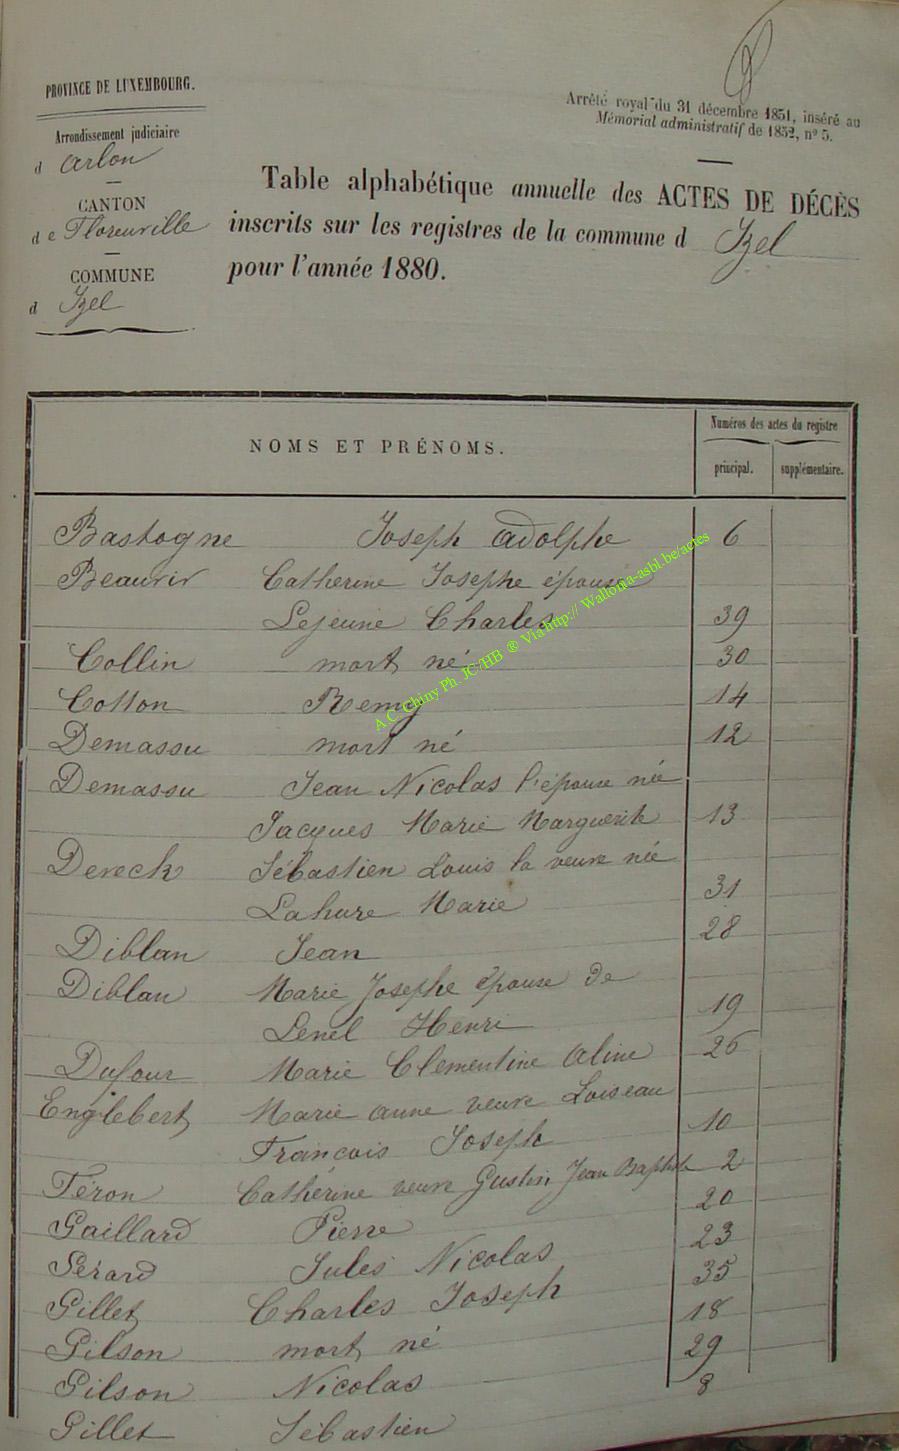 PROVINCE DE LUXEMBOURG.
Arrondissement judiciaire
d Arlon
CANTON
de Florenville
COMMUNE
d Izel
Arrêté royal du 31 décembre 1851, inséré au
Mémorial administratif de 1852, nº 5.
Table alphabétique annuelle des ACTES DE DÉCÈS
inscrits sur les registres de la commune d Izel
pour l'année 1880.
NOMS ET PRÉNOMS.
Numéros des actes du registre
principal. supplémentaire.
Bastogne Joseph Adolphe 6
Beaurir Catherine Josephe épouse
Lejeune Charles 39
Collin mort né 30
Cotton Remy 14
Demassu mort né 12
Demassu Jean Nicolas l'épouse née
Jacques Marie Marguerite 13
Dereck Sébastien Louis la veuve née
Lahure Marie 31
Diblan Jean 28
Diblan Marie Josephe épouse de
Lenel Henri 19
Dufour Marie Clementine Aline 26
Englebert Marie anne veuve Loiseau
François Joseph 10
Féron Cathérine veuve Gustin Jean Baptiste 2
Gaillard Pierre 20
Gérard Jules Nicolas 23
Gillet Charles Joseph 35
Gilson mort né 18
Gilson Nicolas 29
Gillet Sébastien 8
A.C. Chiny Ph. JC/HB ® Via http:// Wallonia-asbl.be/actes